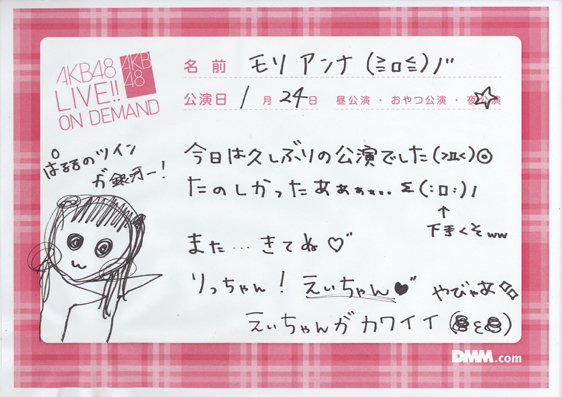 AKB48
LIVE!!
ON DEMAND
AKB
48
名前 モリ アンナ (≧ロ≦)ノ"
公演日 1月24日 昼公演・おやつ公演・夜公演
ぱるるのツイン
が銀河一!
今日は久しぶりの公演でした(>ェ<)◎
たのしかったあぁぁ… Σ(:ロ:)ノ
↑
下手くそww
また…きてね♡"
りっちゃん! えいちゃん♥" やびゃあ
えいちゃんがカワイイ
DMM.com